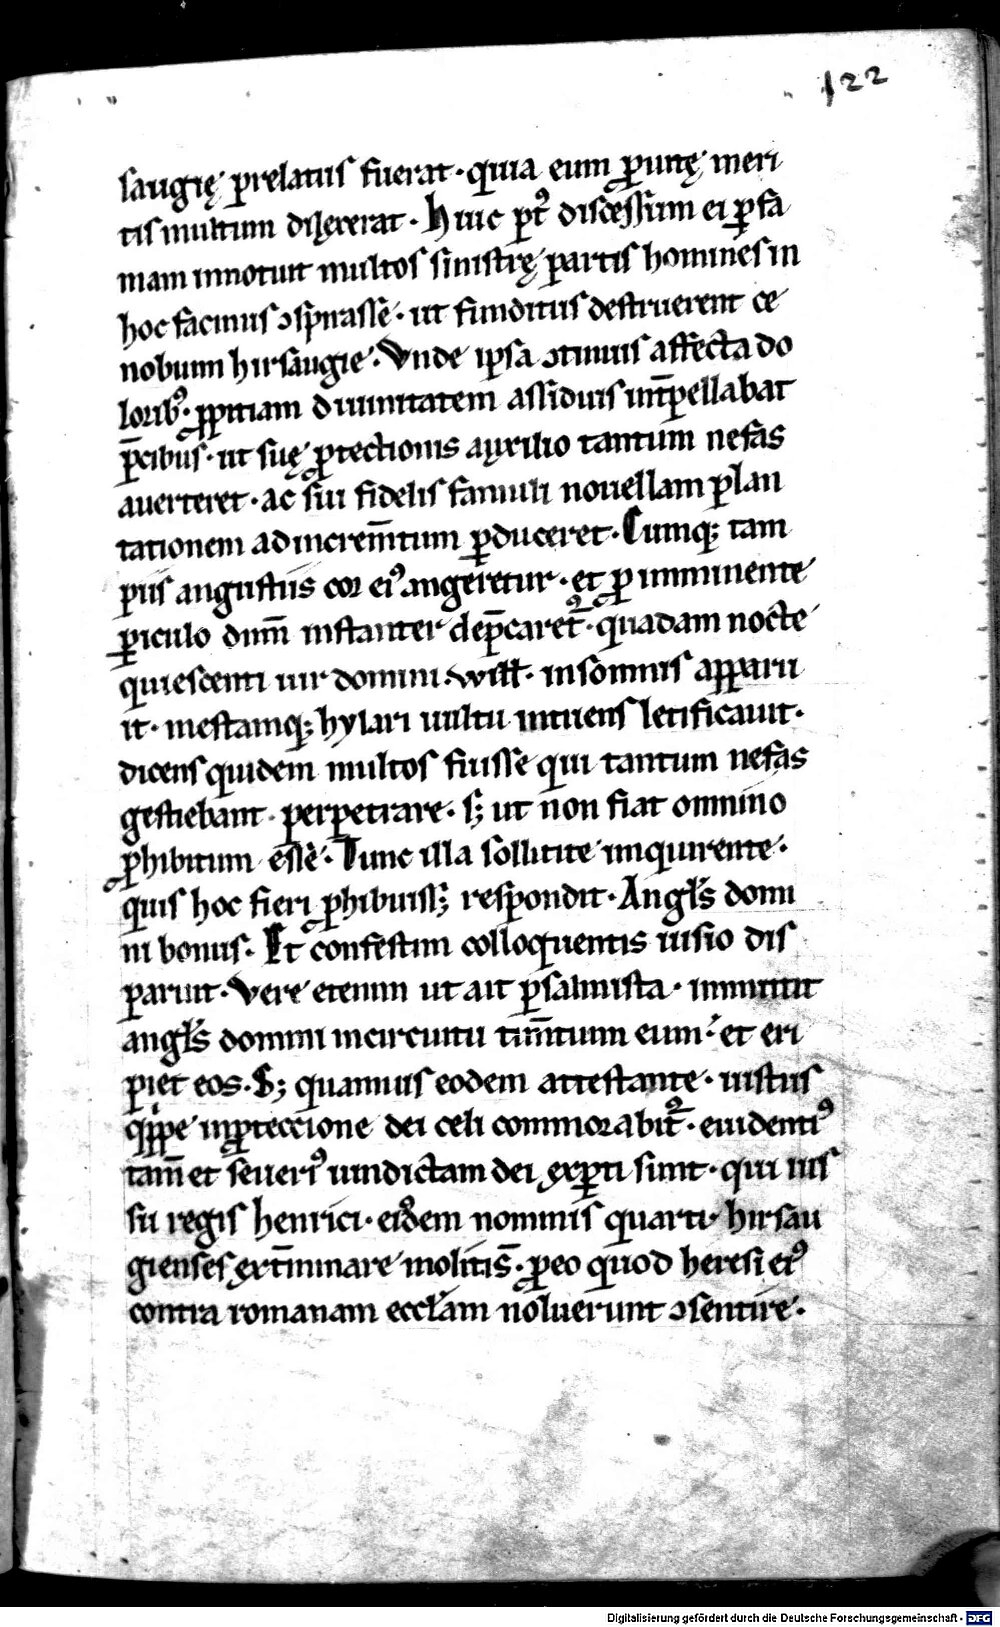 122
saugię prelatus fuerat· quia eum ꝓ uitę meri
tis multum dilexerat· Huic p̄t⁹ discessum ei ꝑ fa
mam innotuit multos sinistrę partis homines in
hoc facinus ↄspirasse· ut funditus destruerent ce
nobium hirsaugie· Vnde ipsa ↄtinuis affecta do
lorib⁹· ꝓpitiam diuinitatem assiduis int̄pellabat
p̄cibus· ut suę ꝓtectionis auxilio tantum nefas
auerteret· ac sui fidelis famuli nouellam plan
tationem ad increm̄tum ꝑduceret· Cumq; tam
piis angustiis cor ei⁹ angeretur· et ꝓ imminente
ꝑiculo dn̄m instanter dep̄caret᷑· quadam nocte
quiescenti uir domini Will̄· in somnis apparu
it· mestamq; hylari uultu intuens letificauit·
dicens quidem multos fuisse qui tantum nefas
gestiebant perpetrare· s; ut non fiat omnino
ꝓhibitum esse· Tunc illa sollicite inquirente·
quis hoc fieri ꝓhibuiss; respondit· Angl̄s domi
ni bonus· Et confestim colloquentis uisio dis
paruit· Vere etenim ut ait psalmista· inmittit
angl̄s domini in circuitu tim̄tium eum· et eri
piet eos· S; quamuis eodem attestante· iustus
q̇ppe in ꝓteccione dei celi commorabit᷑· euidenti⁹
tam̄ et seueri⁹ uindictam dei exꝑti sunt· qui ius
su regis henrici· eiꝰdem nominis quarti· hirsau
gienses ext̄minare molitis̄· ꝓ eo quod heresi ei⁹
contra romanam eccl̄am noluerunt ↄsentire·
Digitalisierung gefördert durch die Deutsche Forschungsgemeinschaft - DFG